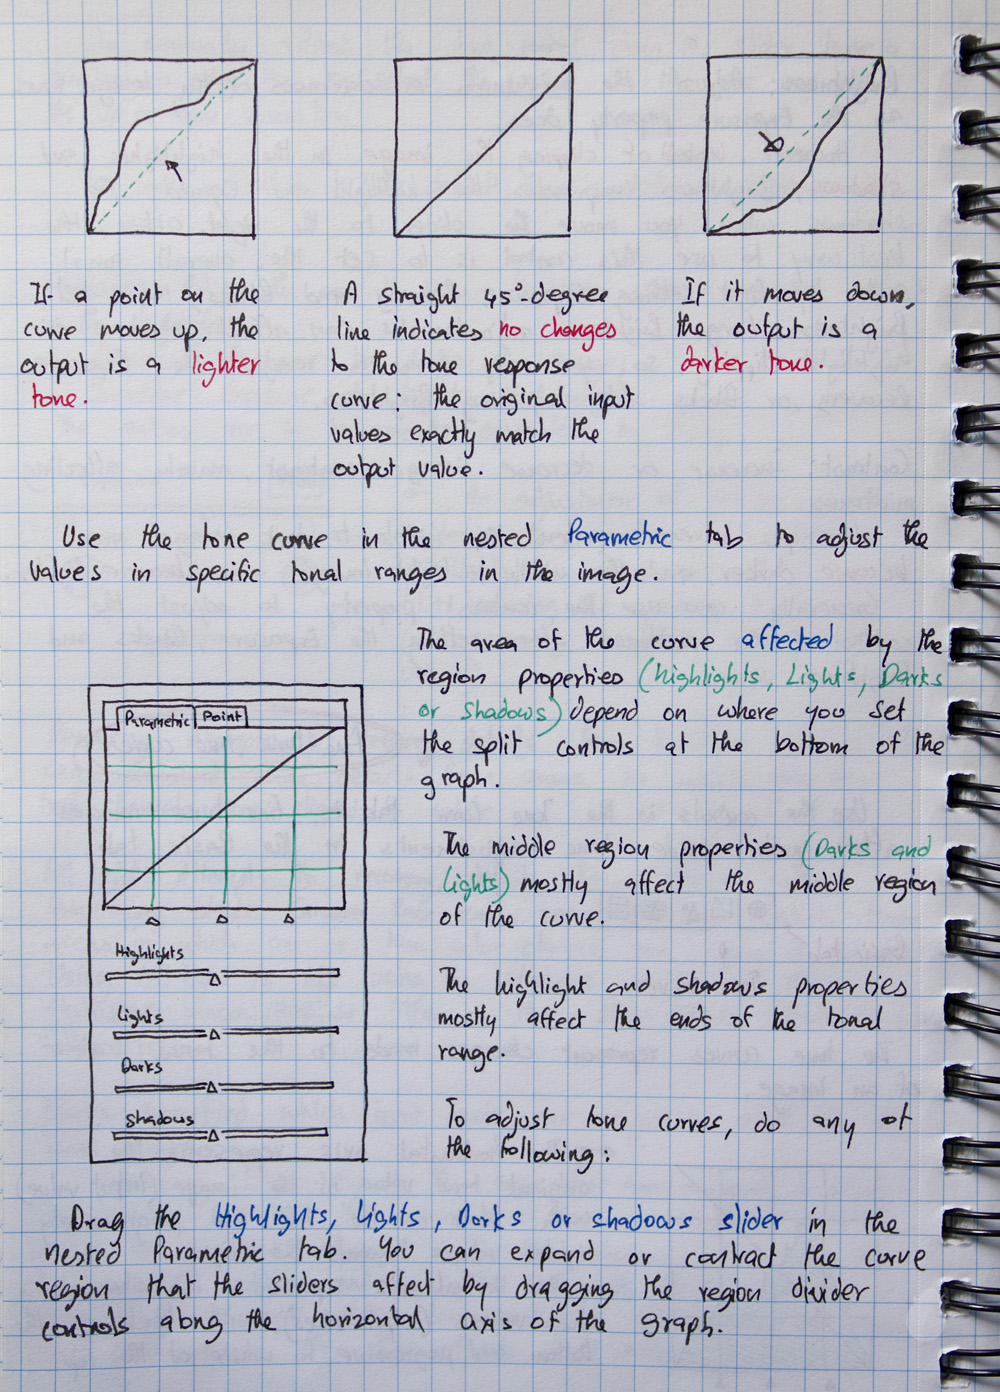 If a point on the
curve moves up, the
output is a lighter
tone.
A straight 45°-degree
line indicates no changes
to the tone response
curve: the original input
values exactly match the
output value.
If it moves down,
the output is a
darker tone.
Use the tone curve in the nested Parametric tab to adjust the
values in specific tonal ranges in the image.
The area of the curve affected by the
region properties (highlights, Lights, Darks
or Shadows) depend on where you set
the split controls at the bottom of the
graph.
The middle region properties (Darks and
Lights) mostly affect the middle region
of the curve.
The highlight and shadows properties
mostly affect the ends of the tonal
range.
To adjust tone curves, do any of
the following:
Parametric Point
Highlights
Lights
Darks
Shadows
Drag the Highlights, Lights, Darks or shadows slider in the
nested Parametric tab. You can expand or contract the curve
region that the sliders affect by dragging the region divider
controls along the horizontal axis of the graph.